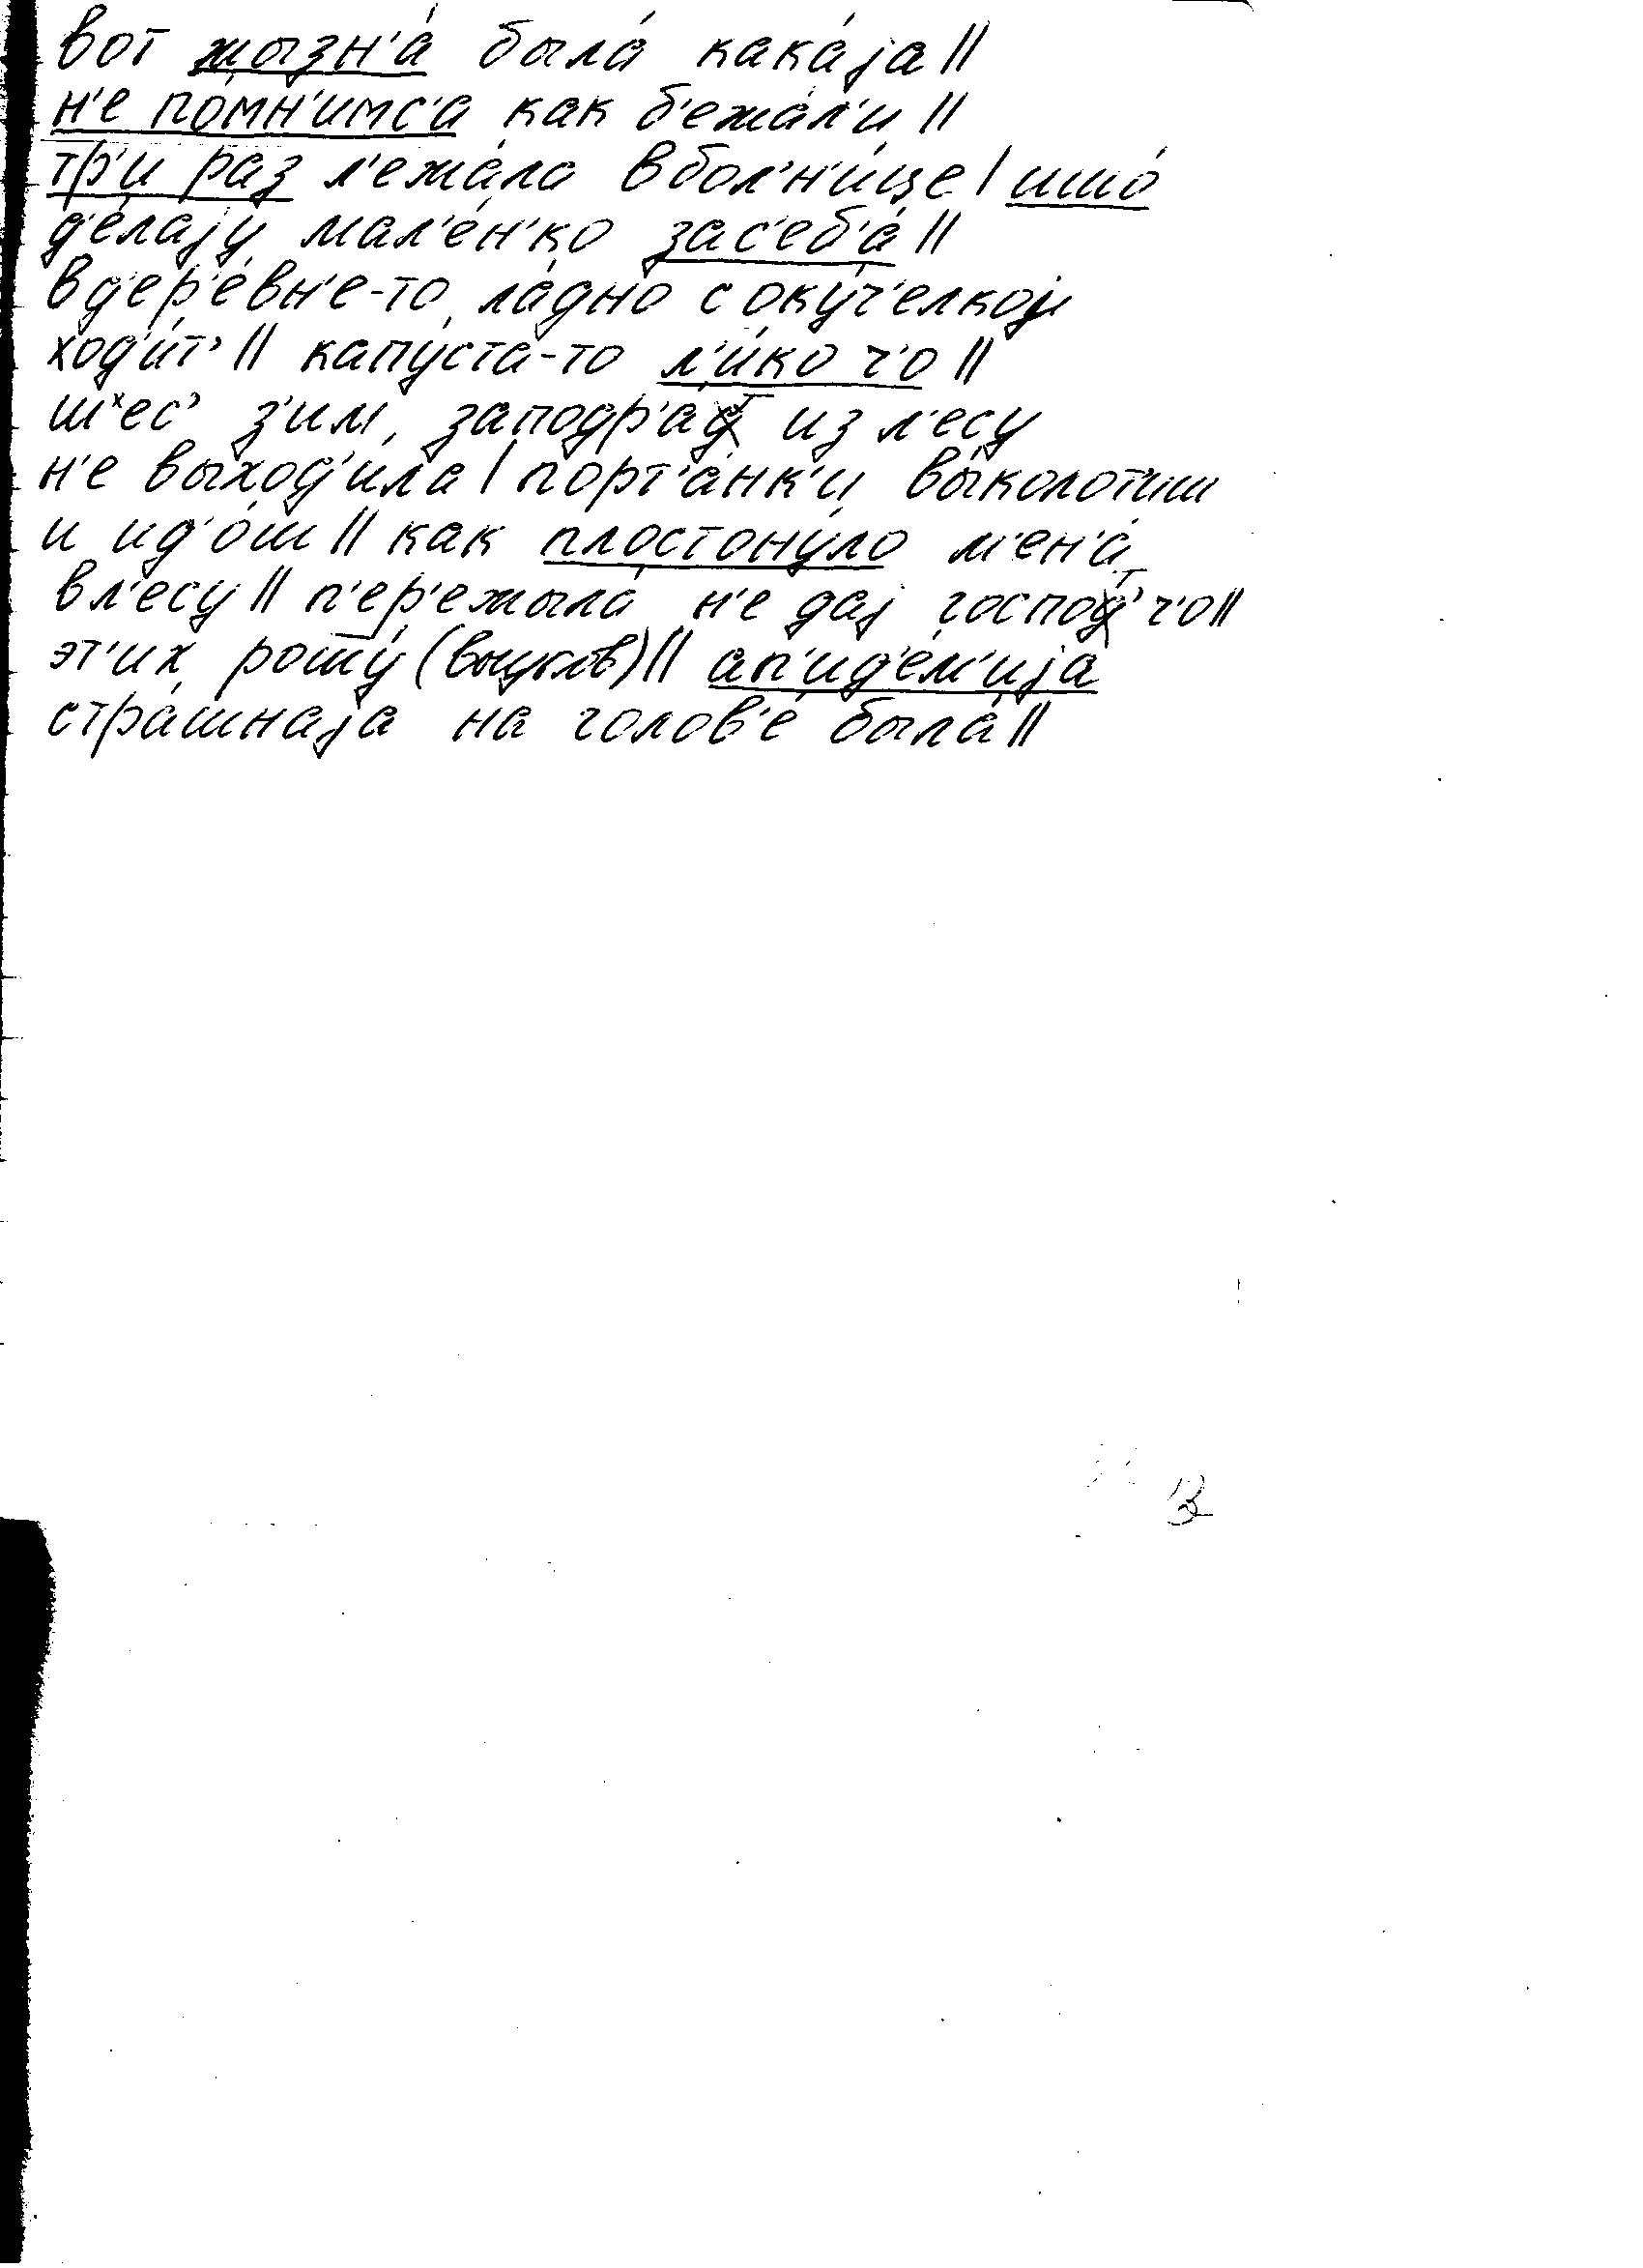 вот жызн'а́ была́ кака́jа ||
н'е по́мн'имс'а как б'ежа́л'и ||
тр'и раз л'ежа́ла в бол'н'и́це | ишо́
д'е́лаjу мал'е́н'ко за с'еб'а́ ||
в д'ер'е́вн'е-то ла́дно с оку́ч'елкоj
ход'и́т' || капу́ста-то л'и́ко ч'о ||
ш'ес' з'им, заподр'а́т из л'е́су
н'е выход'и́ла | порт'а́нк'и вы́колот'иш
и ид'о́ш || как плостону́ло м'ен'а́
в л'есу́ || п'ер'ежыла́ н'е даj го́спот' ч'о ||
э́т'их рошу́ (внуков) || ап'ид'е́м'иjа
стра́шнаjа на голов'е́ была́ ||